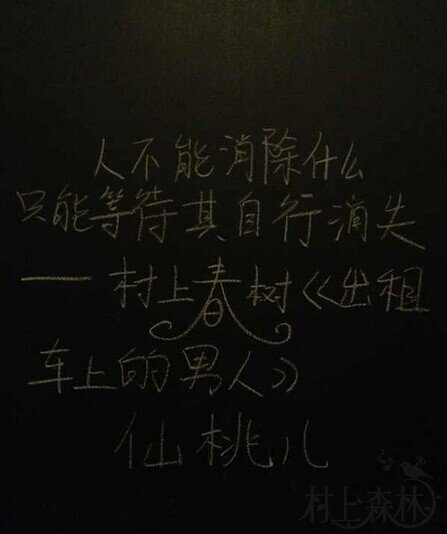 人不能消除什么
只能等待其自行消失
——村上春树《出租
车上的男人》
仙桃儿
村上森林